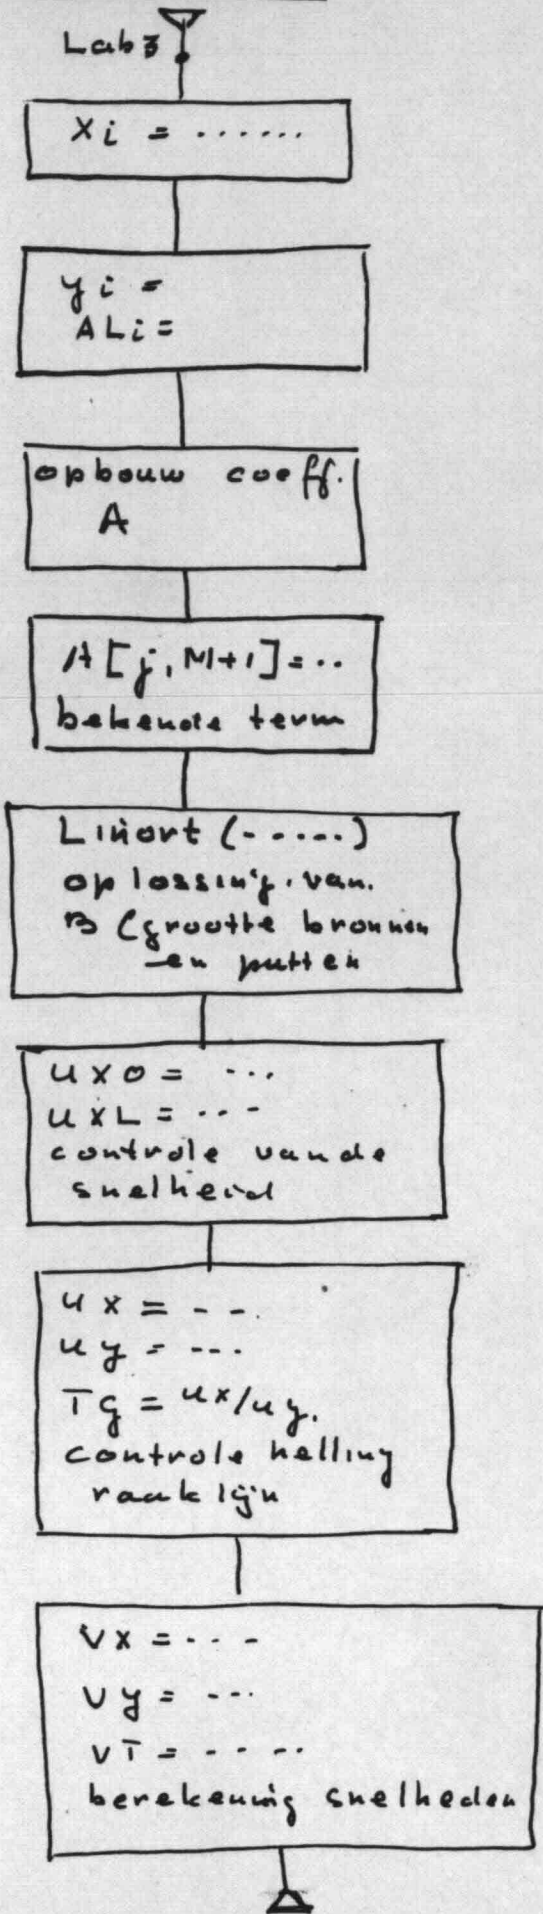 Lab 3
xi = ......
yi =
ALi =
opbouw coeff.
A
A[j, M+1] = ..
bekende term
Linort (-....)
oplossing van.
B (grootte bronnen
en putten
uxo = ...
uxL = ...
controle van de
snelheid
ux = --.
uy = ---.
Tg = ux/uy.
controle helling
raaklijn
vx = ...
vy = ...
vT = .....
berekening snelheden